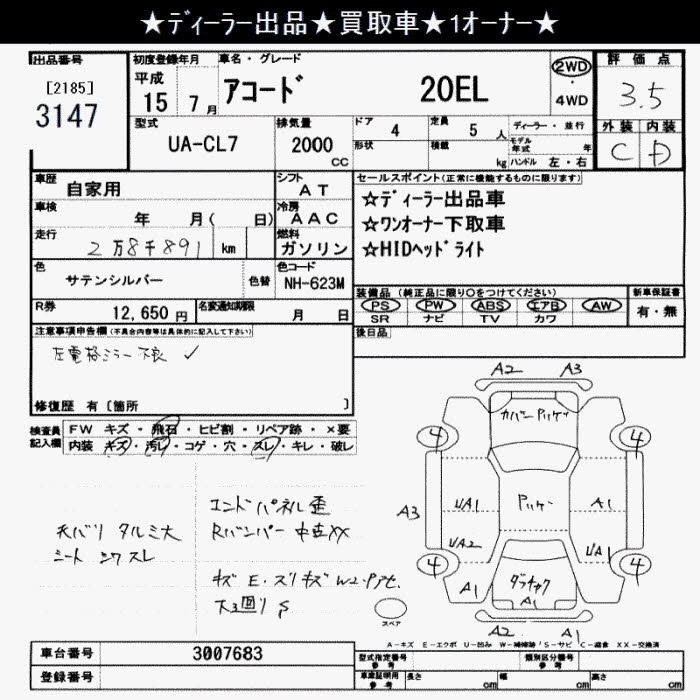 ★ディーラー出品★買取車★1オーナー★
出品番号
[2185]
3147
初度登録年月
平成
15 7月
車名・グレード
アコード 20EL
2WD
・
4WD
評価点
3.5
外装 内装
C D
型式
UA-CL7
排気量
2000
CC
ドア 4 定員 5 人
形状 積載 kg
ディーラー・並行
モデル年式 年
ハンドル 左・右
車歴 自家用
シフト
AT
車検 年 月( 日)
冷房
AAC
走行 2万8千891 km
燃料
ガソリン
色 サテンシルバー 色替
色コード
NH-623M
R券 12,650円
名変通知期限 月 日
セールスポイント(正常に機能するものに限ります)
☆ディーラー出品車
☆ワンオーナー下取車
☆HIDヘッドライト
装備品(純正品に限り○をつけてください)
PS PW ABS エアB AW
SR ナビ TV カワ
新車保証書
有・無
後日品
注意事項申告欄(不具合内容等は具体的に記入して下さい)
左電格ミラー不良 ✓
修復歴 有[箇所 ]
検査員記入欄
FW キズ・飛石・ヒビ割・リペア跡・×要
内装 キズ・汚レ・コゲ・穴・スレ・キレ・破レ
天バリ タルミ大
シート シワ スレ
エンドパネル歪
Rバンパー 中古XX
キズ E・スリキズ W2・Pアセ.
下廻り S
A2 A3
カバー アリケイ
4 4
A3 U/A1 アリケー A1
U/A2 U/A1
4 4
A1 ダラチャク A1
A2 A1
スペア
A-キズ E-エクボ U-凹み W-補修跡 S-サビ C-腐食 XX-交換済
車台番号 3007683
登録番号
型式指定番号
参考
類別区分番号
参考
車庫証明用
参考
長さ cm 幅 cm 高さ cm